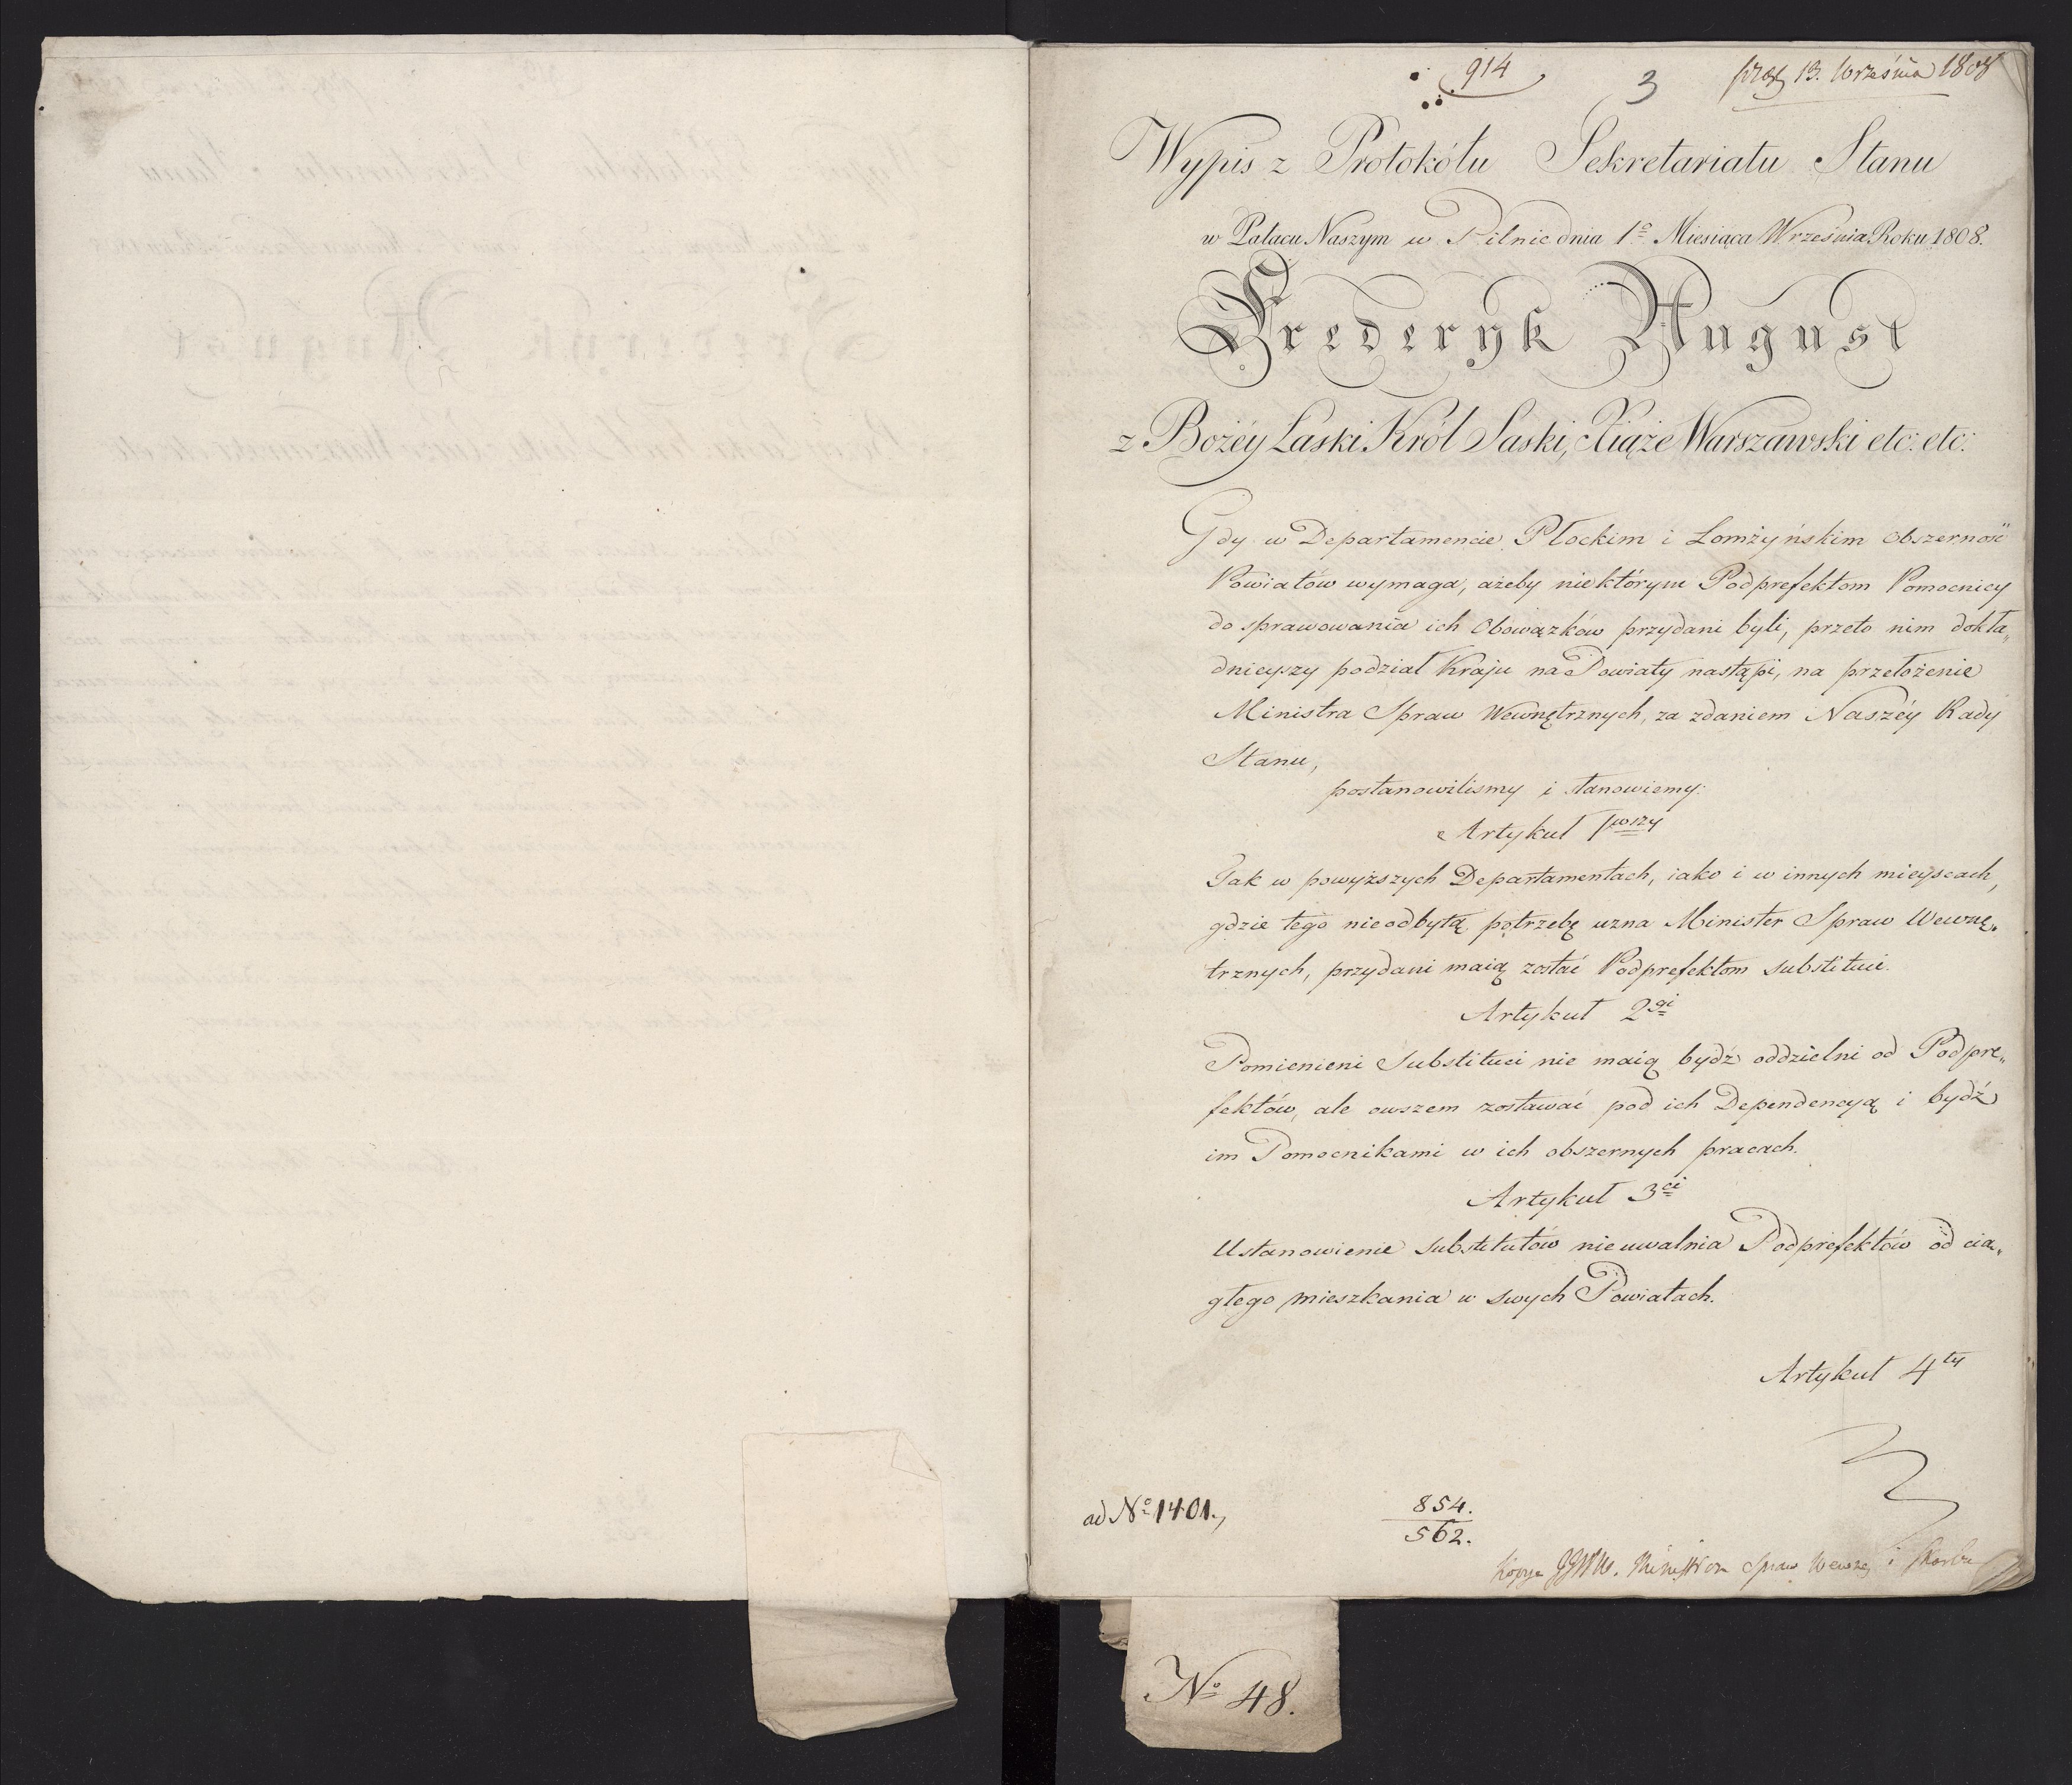 914
3
prez 13. Września 1808
Wypis z Protokółu Sekretariatu Stanu
w Pałacu Naszym w Pilnic dnia 1º Miesiąca Września Roku 1808.
Frederyk August
z Bożéy Łaski Król Saski, Xiąże Warszawski etc: etc:
Gdy w Departamencie Płockim i Łomżyńskim Obszerność
Powiatów wymaga, ażeby niektórym Podprefektom Pomocnicy
do sprawowania ich Obowązków przydani byli, przeto nim dokła„
dnieyszy podział Kraju na Powiaty nastąpi, na przełożenie
Ministra Spraw Wewnętrznych, za zdaniem Naszéy Rady
Stanu,
postanowilismy i stanowiemy:
Artykuł 1wszy
Tak w powyższych Departamentach, iako i w innych mieyscach,
gdzie tego nieodbytą potrzebę uzna Minister Spraw Wewnę„
trznych, przydani maią zostać Podprefektom substituci.
Artykuł 2gi
Pomienieni Substituci nie maią bydź oddzielni od Podpre„
fektów, ale owszem zostawać pod ich Dependencyą i bydź
im Pomocnikami w ich obszernych pracach.
Artykuł 3ci
Ustanowienie substitutów nieuwalnia Podprefektów od cią„
głego mieszkania w swych Powiatach.
Artykuł 4ty
ad Nº 1401.
854.
562.
Kopye JJWW. Ministrom Spraw Wewnę i Skarbu
Nº 48.